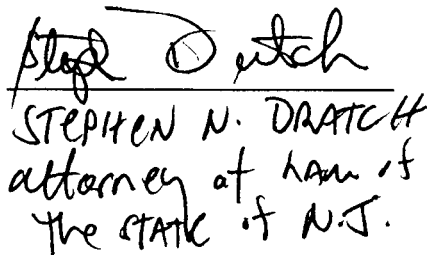 Steph Dratch
STEPHEN N. DRATCH
attorney at Law of
the STATE of N.J.